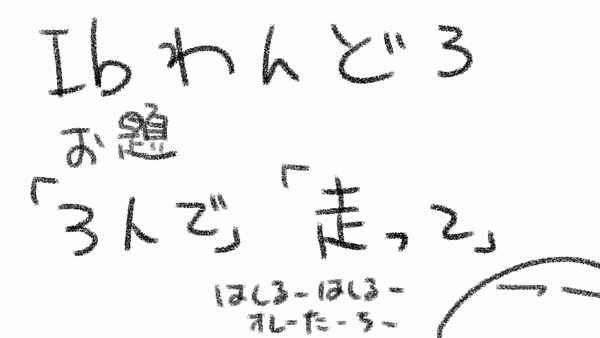 Ibわんどろ
お題
「3人で」「走って」
はしるーはしるー
オレーたーちー